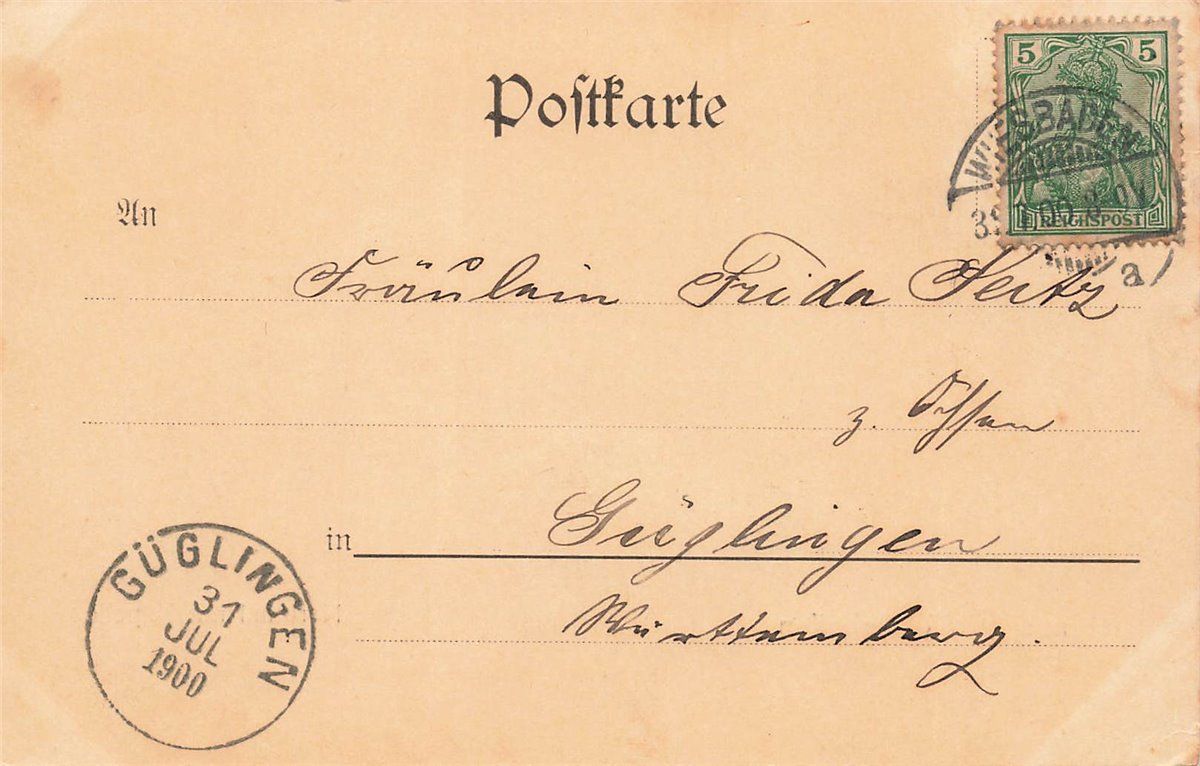 5 5
Postkarte
WIESBADEN
REICHSPOST
a
An
Fräulein Frida
z. Ochsen
in Güglingen
Württemberg.
GÜGLINGEN
31
JUL
1900